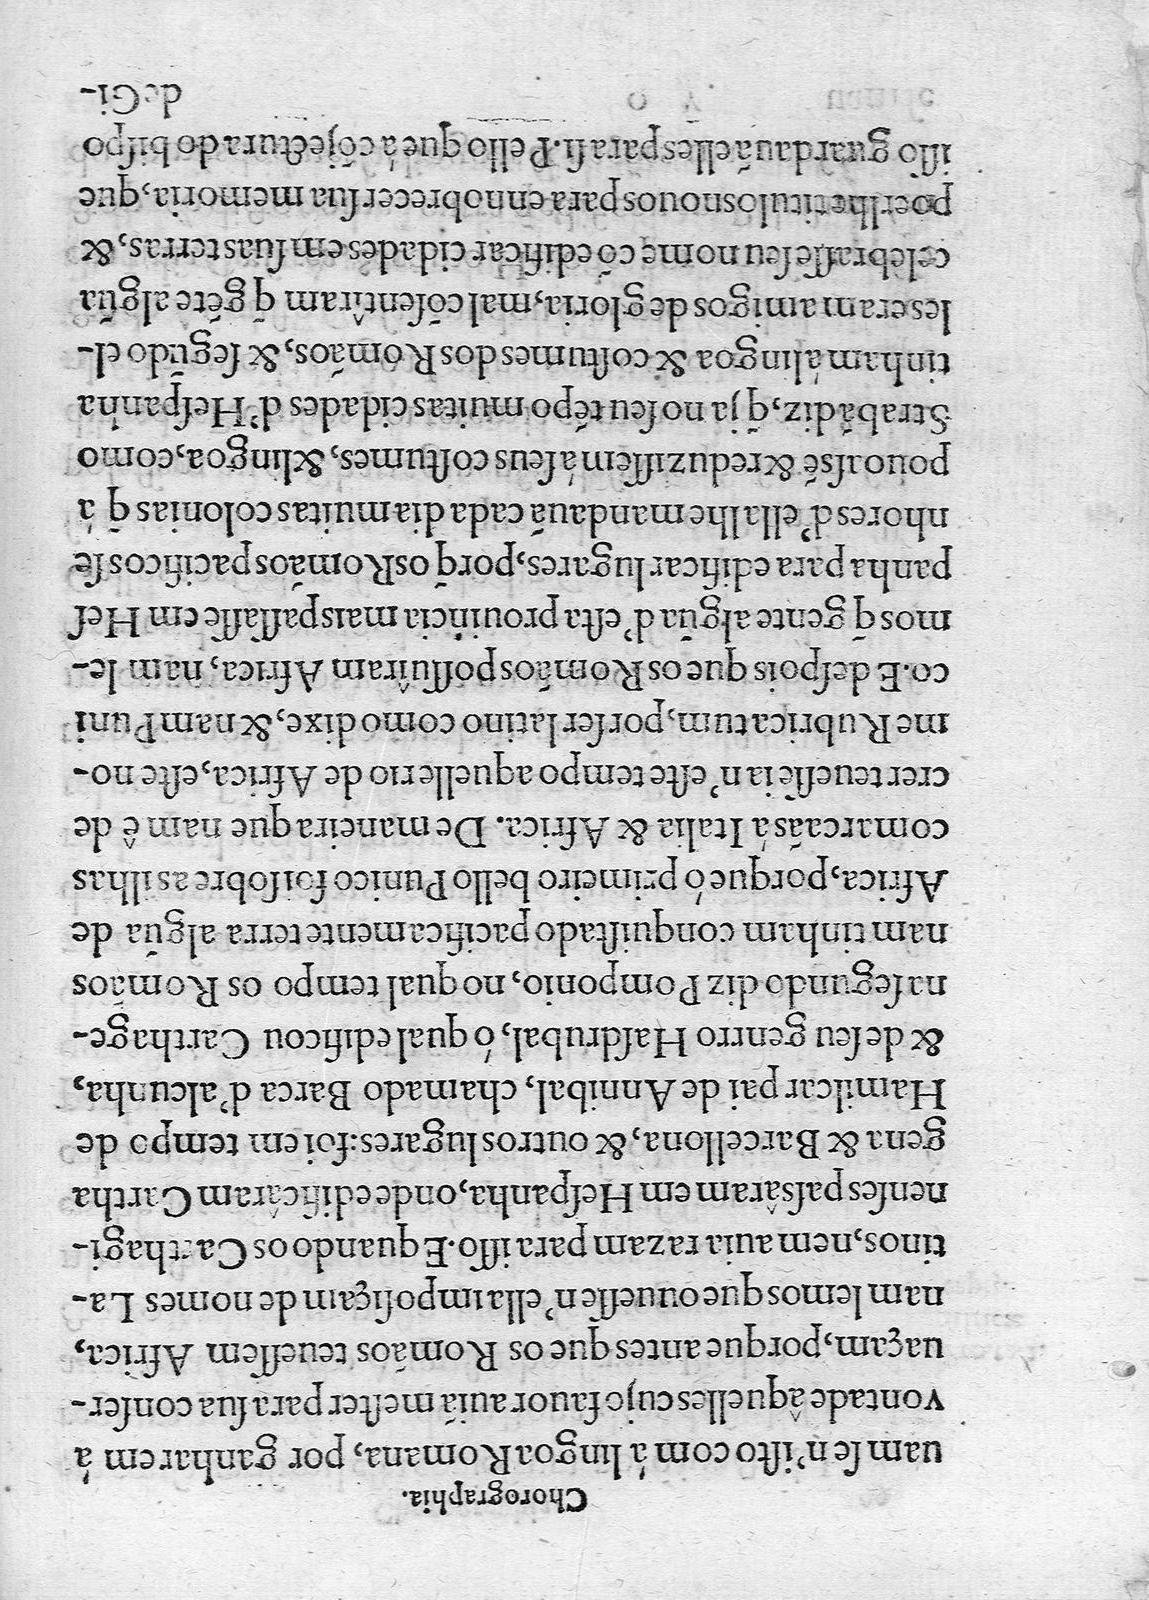 Chorographia.
uam ſe n'iſto com á lingoa Romana, por ganharem á
vontade âquelles cujo fauor auiã meſter para ſua conſer-
uaçam, porque antes que os Romãos teueſſem Africa,
nam lemos que ouueſſe n'ella impoſiçam de nomes La-
tinos, nem auia razam para iſſo. E quando os Carthagi-
neſes paſsâram em Heſpanha, onde edificâram Cartha
gena & Barcellona, & outros lugares: foi em tempo de
Hamilcar pai de Annibal, chamado Barca d'alcunha,
& de ſeu genrro Haſdrubal, ó qual edificou Carthage-
na ſegundo diz Pomponio, no qual tempo os Romãos
nam tinham conquiſtado pacificamente terra algũa de
Africa, porque ó primeiro bello Punico foi ſobre as ilhas
comarcaãs á Italia & Africa. De maneira que nam ê de
crer teueſſe ia n'eſte tempo aquelle rio de Africa, eſte no-
me Rubricatum, por ſer latino como dixe, & nam Puni
co. E deſpois que os Romãos poſſuîram Africa, nam le-
mos q̃ gente algũa d'eſta prouincia mais paſſaſſe em Heſ
panha para edificar lugares, porq̃ os Romãos pacificos ſe
nhores d'ella lhe mandauã cada dia muitas colonias q̃ á
pouoaſsẽ & reduziſſem á ſeus coſtumes, & lingoa, como
Strabã diz, q̃ ja no ſeu tẽpo muitas cidades d'Heſpanha
tinham á lingoa & coſtumes dos Romãos, & ſegũdo el-
les eram amigos de gloria, mal cõſentîram q̃ gẽte algũa
celebraſſe ſeu nome cõ edificar cidades em ſuas terras, &
poerlhe titulos nouos para ennobrecer ſua memoria, que
iſſo guardauã elles para ſi. Pello que á cõjectura do biſpo
de Gi-